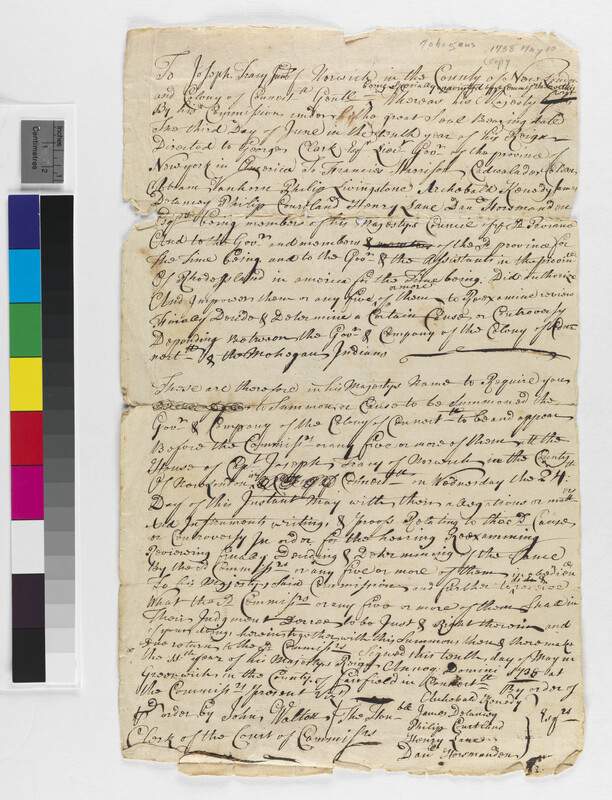 Mohegans 1738 May 10
Copy
To Joseph Tracy Junr of Norwich in the County of New London
and Colony of Connectt Gentle Whereas his Majesty
By his Commission under the great Seal Bearing date
The third Day of June in the tenth year of his Reign
Directed to George Clark Esqr Lieu Govr of the province of
Newyork in America To Francis Harrison Cadwalader
Abram Vanhorn Philip Livingstone Archobald Kenedy James
Delancey Philip Courtland Henry Lane Danl Horsmanden
Esqrs Being members of his Majestys Council of the sd Province
And to the Govr and members of the sd province for
The Time being and to the Govr & the Assistants in the provin
Of Rhodeisland in america for the Time being. Did Authorize
And Impower them or any five or more of them to Reexamine review
Finaly Decide & Determine a Certain Cause or Controversy
Depending Between the Govr & Company of the Colony of Con
nectt & the Mohegan Indians
These are therefore in his Majestys Name to Require you
to Summon or Cause to be summoned the
Govr & Company of the Colony of Connectt to be and appear
Before the Commissrs or any five or more of them att the
House of Capt Joseph Tracy of Norwich in the County
Of Newlondon in Connectt on Wednesday the 24th
Day of this Instant May with their alegations or
And Instruments writings, & proofs Relating to the sd Cause
or Controversy In order for the hearing Reexamining
Reviewing finaly Deciding & Determining of the same
By the sd Commissrs or any five or more of them in obedien
To his Majestys said Commission and farther
What the sd Commissrs or any five or more of them shall in
Their Judgment Decree to be Just & Right therein and
of your doings herein together with this Summons then & there make
Due return to the sd Commissrs Signed this tenth day of May in
The 11th year of his Majestys Reign Annoq Domini 1738 at
Greenwich in the County of Fairfield in Connectt By order of
The Commissrs present vizt
Archobald Kenedy
pr order by John Walter of The Honble James Delancey
Philip Courtland Esqrs
Clark of the Court of Commissrs Henry Lane
Danl Horsmanden